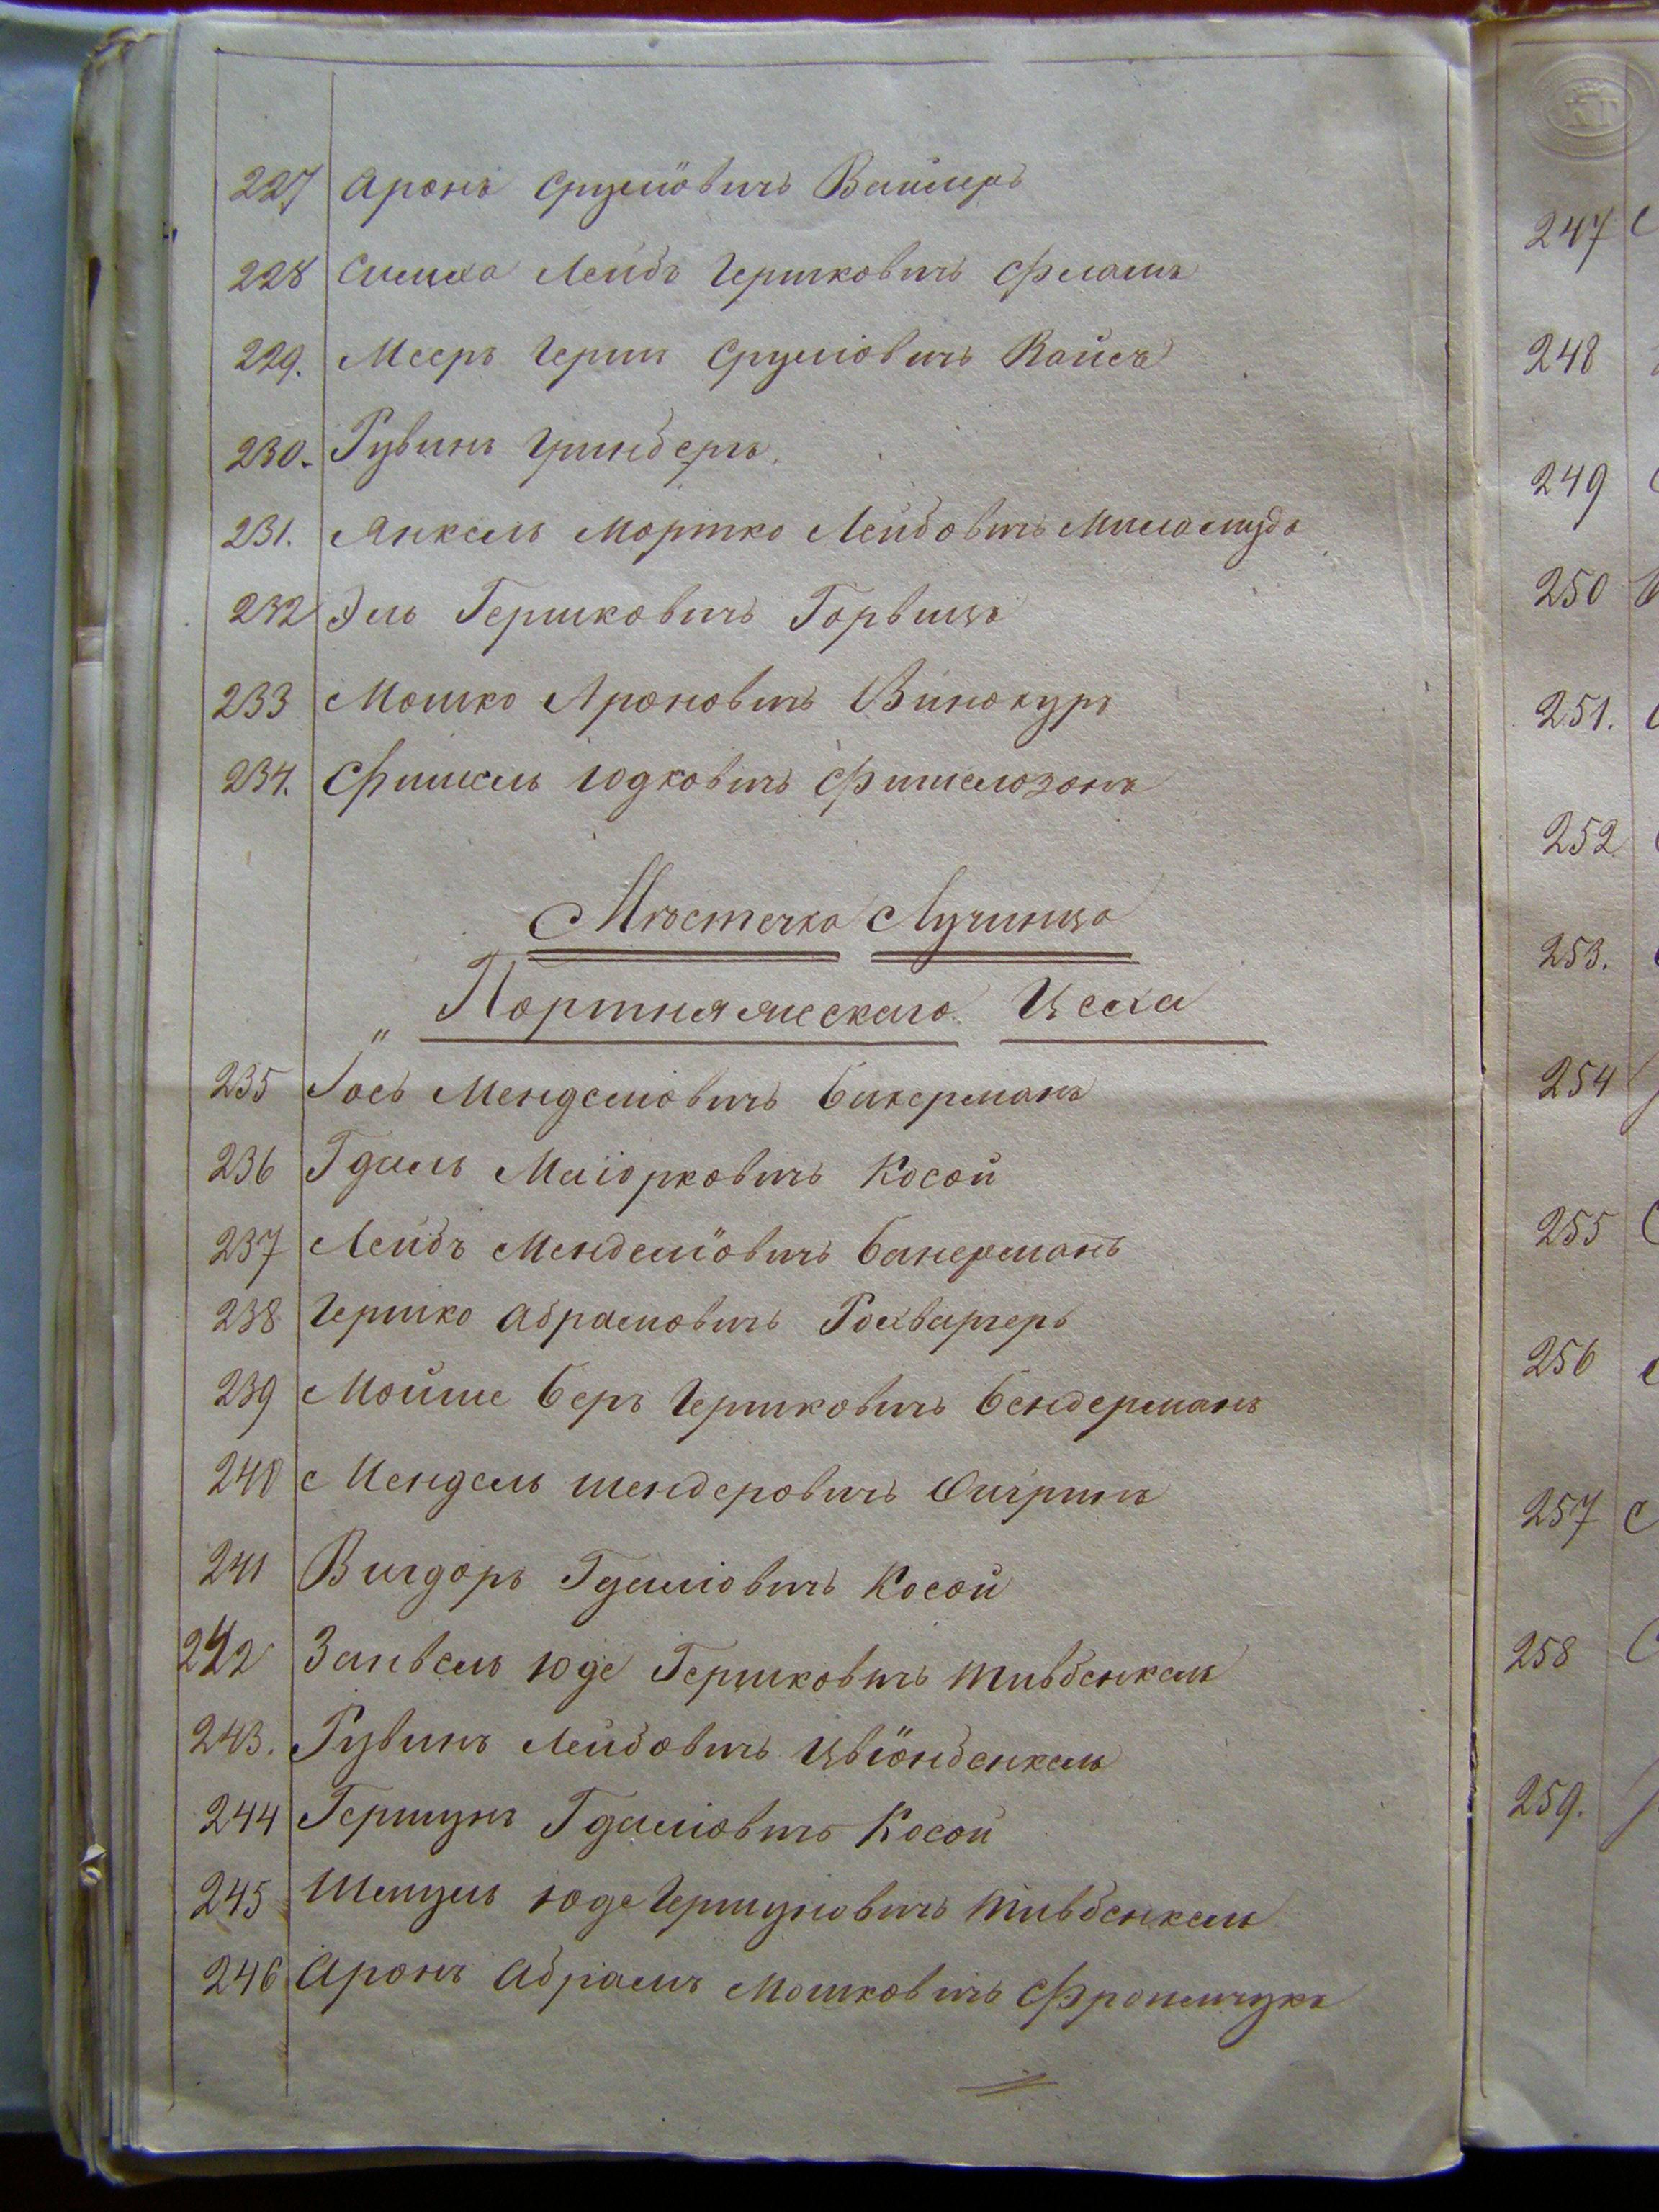 227 Аронъ Срулiовичъ Ваинеръ
228 Симха Лейбъ Гершковичъ Флашъ
229. Мееръ Герш Срулiовичъ Вайсъ
230. Рувинъ Гринберъ.
231. Янкель Мортко Лейбовичъ
232 Эль Гершковичъ Горвицъ
233 Мошко Ароновичъ Винокуръ
234. Фишель Юдковичъ Фишелозонъ
Мѣстечка Лучинца
„ Портняжескаго Цеха
235 Iось Менделiовичъ Бикерманъ
236 Гдаль Маiорковичъ Косой
237 Лейбъ Менделiовичъ Бакерманъ
238 Гершко Абрамовичъ Рохваргеръ
239 Мойше Беръ Гершковичъ Бендерманъ
240 Мендель Шендеровичъ
241 Вигдоръ Гдалiовичъ Косой
242 Занвель Юде Гершковичъ Тивбенкель
243. Рувинъ Лейбовичъ Цвiонбенкель
244 Гершунъ Гдалiовичъ Косой
245 Шмуль Юде Гершуновичъ Тивбенкель
246 Аронъ Абрамъ Мошковичъ
247
248
249
250
251.
252
253.
254
255
256
257
258
259.